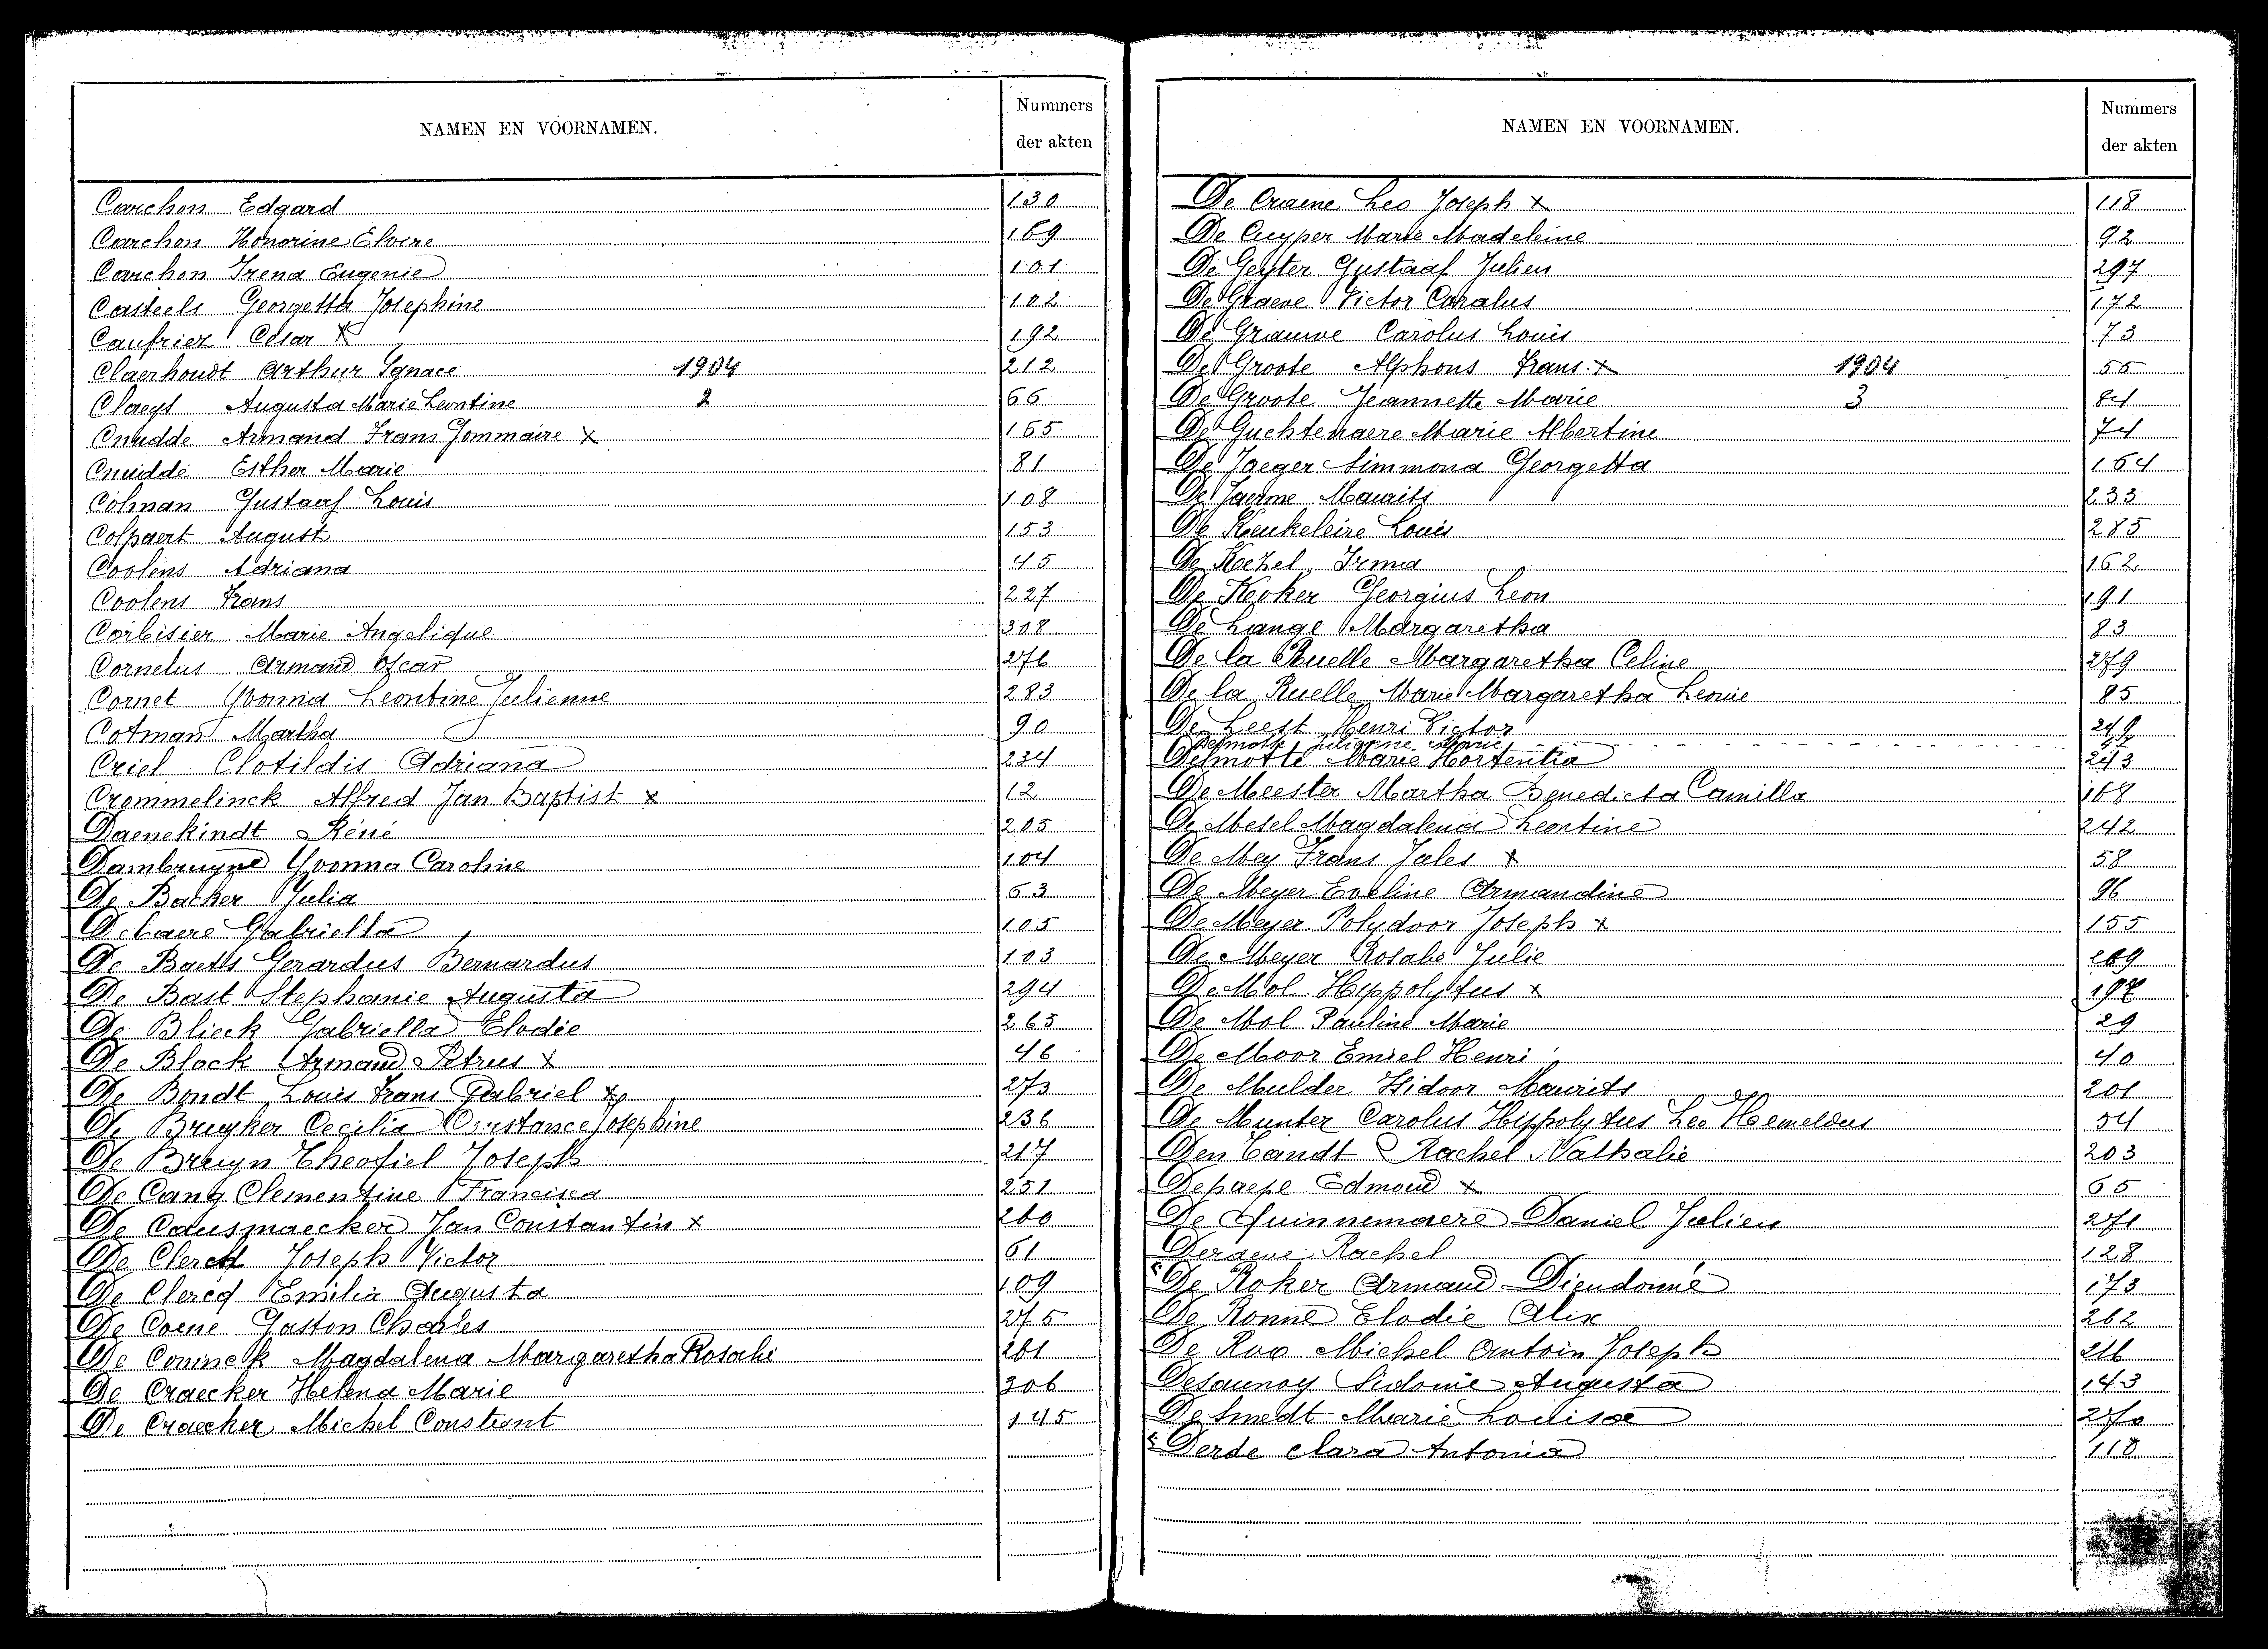 NAMEN EN VOORNAMEN.
Nummers
der akten
Carchon Edgard 130
Carchon Honorine Elvire 169
Carchon Irena Eugenie 101
Casteels Georgetta Josephine 102
Caufriez Cesar X 192
Claerhoudt Arthur Ignace 1904 212
Claeys Augusta Marie Leontine 2 66
Cnudde Armand Frans Gommaire x 165
Cnudde Esther Marie 81
Colman Gustaaf Louis 108
Colpaert August 153
Coolens Adriana 45
Coolens Frans 227
Corbisier Marie Angelique 308
Cornelus Armand Oscar 276
Cornet Yvonna Leontine Julienne 283
Cotman Martha 90
Criel Clotildis Adriana 234
Crommelinck Alfred Jan Baptist x 12
Daenekindt Réné 205
Dambruyne Yvonna Caroline 104
De Backer Julia 63
Debaere Gabriella 105
De Baets Gerardus Bernardus 103
De Bast Stephanie Augusta 294
De Blieck Gabriella Elodie 265
De Block Armand Petrus x 46
De Bondt Louis Frans Gabriel x 273
De Bruyker Cecilia Constance Josephine 236
De Bruyn Theofiel Joseph 217
De Cang Clementine Francisca 251
De Causmaecker Jan Constantin x 260
De Clercq Joseph Victor 61
De Clercq Emilia Augusta 109
De Coene Gaston Charles 275
De Coninck Magdalena Margaretha Rosalie 261
De Craecker Helena Marie 306
De Craecker Michel Constant 145
NAMEN EN VOORNAMEN.
Nummers
der akten
De Craene Leo Joseph x 118
De Cuyper Marie Madeleine 92
De Geyter Gustaaf Julien 297
De Graeve Victor Carolus 172
De Grauwe Carolus Louis 73
De Groote Alphons Frans x 1904 55
De Groote Jeannette Marie 3 84
De Guchtenaere Marie Albertine 74
De Jaeger Simmona Georgetta 164
De Jaerme Maurits 233
De Keukeleire Louis 285
De Kezel Irma 162
De Koker Georgius Leon 191
De Lange Margaretha 83
De la Ruelle Margaretha Celine 279
De la Ruelle Marie Margaretha Leonie 85
De Leest Henri Victor 249
Delmotte Julienne Marie
Delmotte Marie Hortentia 243
De Meester Martha Benedicta Camilla 168
De Mesel Magdalena Leontine 242
De Mey Frans Jules x 58
De Meyer Eveline Armandine 96
De Meyer Polydoor Joseph x 155
De Meyer Rosalie Julie 269
De Mol Hippolytus x
De Mol Pauline Marie 29
De Moor Emiel Henri 40
De Mulder Isidoor Maurits 201
De Munter Carolus Hippolytus Leo Hemeldus 54
Den Tandt Rachel Nathalie 203
Depaepe Edmond x 65
De Quinnemaere Daniel Julien 271
Deraeve Rachel 128
De Roker Armand Dieudonné 173
De Ronne Elodie Alix 262
De Roo Michel Antoin Joseph 216
Desaunoy Sidonie Augusta 143
De Smedt Marie Louisa 270
Derde Clara Antonia 110